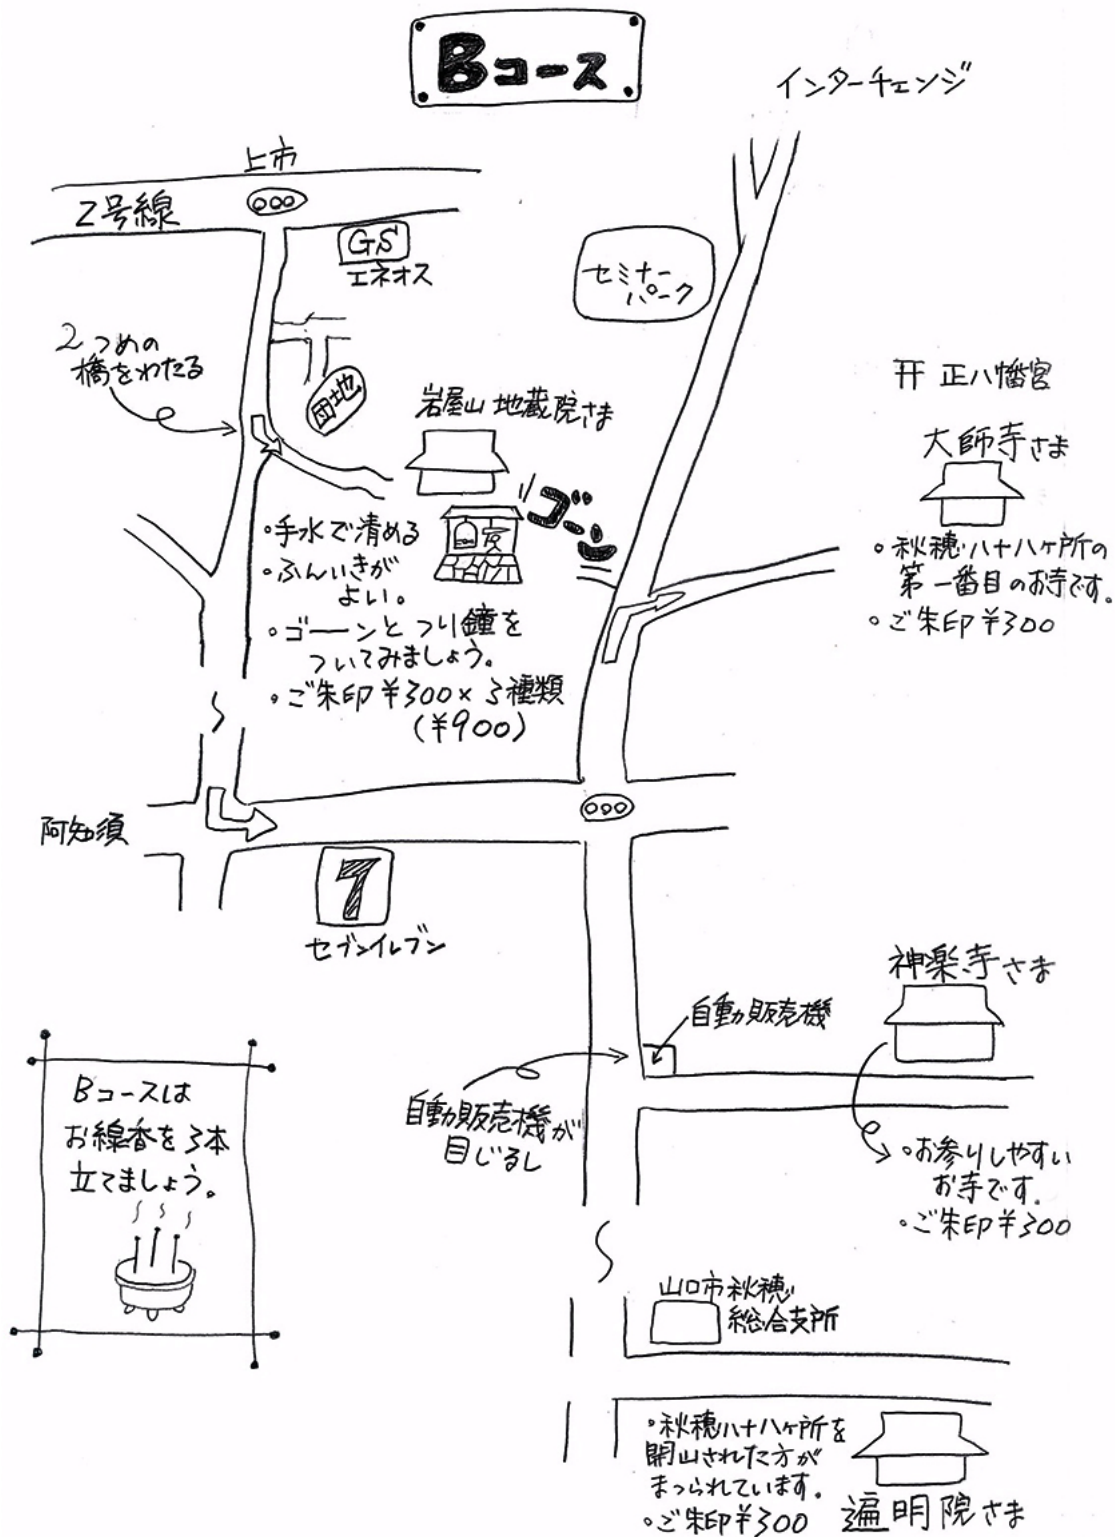 Bコース
インターチェンジ
上市
2号線
GS
エネオス
セミナー
パーク
2つめの
橋をわたる
団地
岩屋山 地蔵院さま
ゴーン
・手水で清める
・ふんいきが
よい。
・ゴーンとつり鐘を
ついてみましょう。
・ご朱印¥300×3種類
(¥900)
正八幡宮
大師寺さま
・秋穂八十八ヶ所の
第一番目のお寺です。
・ご朱印¥300
阿知須
7
セブンイレブン
神楽寺さま
自動販売機
自動販売機が
目じるし
・お参りしやすい
お寺です。
・ご朱印¥300
Bコースは
お線香を3本
立てましょう。
山口市秋穂
総合支所
・秋穂八十八ヶ所を
開山された方が
まつられています。
・ご朱印¥300
遍明院さま